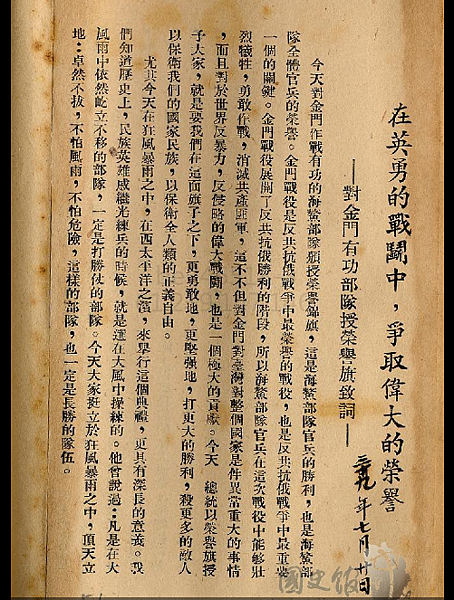 在英勇的戰鬪中，爭取偉大的榮譽
——對金門有功部隊授榮譽旗致詞——
三九年七月廿日
今天對金門作戰有功的海鷲部隊頒授榮譽錦旗，這是海鷲部隊官兵的勝利，也是海鷲部
隊全體官兵的榮譽。金門戰役是反共抗俄戰爭中最榮譽的戰役，也是反共抗俄戰爭中最重要
一個的關鍵。金門戰役展開了反共抗俄勝利的階段，所以海鷲部隊官兵在這次戰役中能够壯
烈犧牲，勇敢作戰，消滅共產匪軍，這不但對金門對臺灣對整個國家是件異常重大的事情
，而且對於世界反暴力，反侵略的偉大戰鬪，也是一個極大的貢獻。今天　總統以榮譽旗授
予大家，就是要我們在這面旗子之下，更勇敢地，更堅強地，打更大的勝利，殺更多的敵人
以保衛我們的國家民族，以保衛全人類的正義自由。
尤其今天在狂風暴雨之中，在西太平洋之濱，來舉行這個典禮，更具有深長的意義。我
們知道歷史上，民族英雄戚繼光練兵的時候，就是選在大風中操練的。他曾說過：凡是在大
風雨中依然屹立不移的部隊，一定是打勝仗的部隊。今天大家挺立於狂風暴雨之中，頂天立
地：卓然不拔，不怕風雨，不怕危險，這樣的部隊，也一定是長勝的隊伍。
國史館